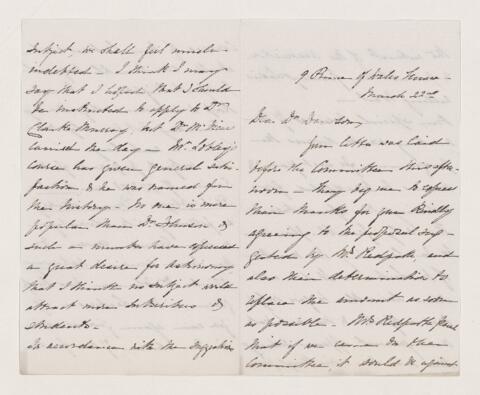 9 Prince of Wales Terrace -
March 22nd
Dear Dr. Dawson,
Your letter was laid
before the Committee this after-
noon - They beg me to express
their thanks for your kindly
agreeing to the proposal sug-
gested by Mrs Redpath, and
also their determination to
replace the amount as soon
as possible - Mrs Redpath
that if we came on the
Committee, it would be against
subject we shall feel much
indebted - I think I may
say that I hoped that I should
be instructed to apply to Dr.
Clarke Murray, but Dr.
carried the day - Mr. Lobley's
course has given general satis-
faction & he was named for
the history - No one is more
popular than Dr. Johnson &
such a number have expressed
a great desire for Astronomy
that I think no subject will
attract more Subscribers &
Students -
In accordance with the suggestion